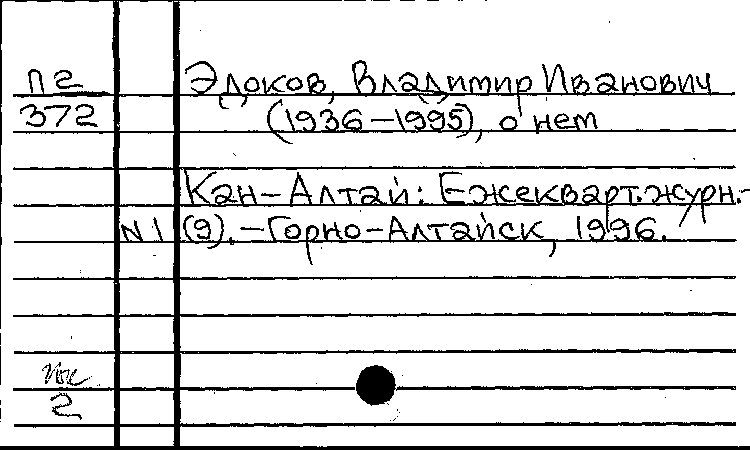 П2
372
Эдоков, Владимир Иванович
(1936–1995), о нем
Кан–Алтай: Ежекварт.журн.–
N1 (9).–Горно–Алтайск, 1996.
2